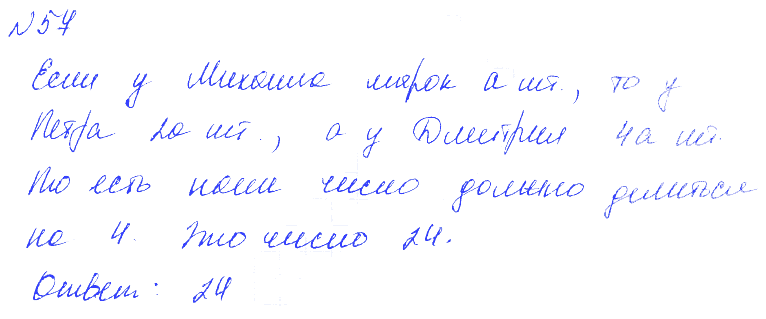 №57
Если у Михаила марок а шт., то у
Петра 2а шт., а у Дмитрия 4а шт.
То есть наши число должно делиться
на 4. Это число 24.
Ответ: 24